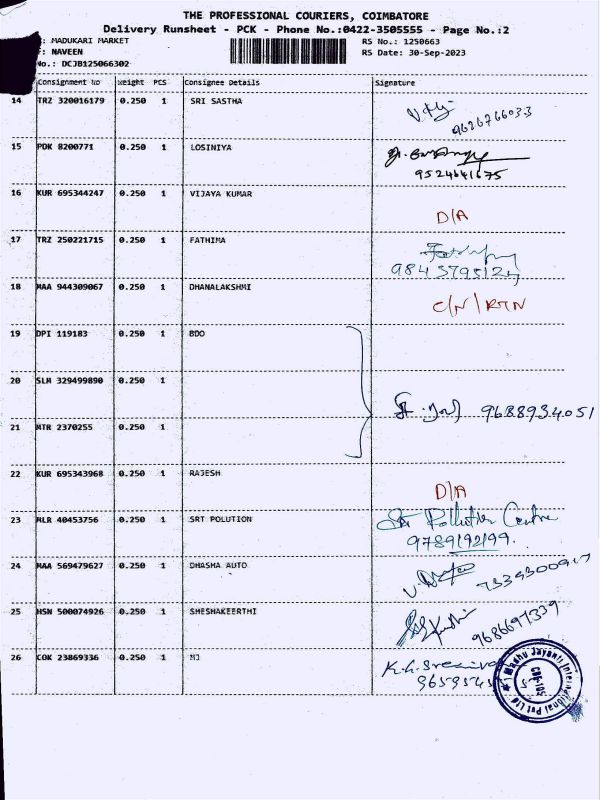 THE PROFESSIONAL COURIERS, COIMBATORE
Delivery Runsheet - PCK - Phone No.:0422-3505555 - Page No.:2
: MADUKARI MARKET
RS No.: 1250663
: NAVEEN
RS Date: 30-Sep-2023
No.: DCJB125066302
Consignment No Weight PCS Consignee Details Signature
14 TRZ 320016179 0.250 1 SRI SASTHA
9626766033
15 PDK 8200771 0.250 1 LOSINIYA
9524641675
16 KUR 695344247 0.250 1 VIJAYA KUMAR
D/A
17 TRZ 250221715 0.250 1 FATHIMA
18 MAA 944309067 0.250 1 DHANALAKSHMI
C/N/RTN
19 DPI 119183 0.250 1 BDO
20 SLM 329499890 0.250 1
9688934051
21 MTR 2370255 0.250 1
22 KUR 695343968 0.250 1 RAJESH
D/A
23 MLR 40453756 0.250 1 SRT POLUTION
Sri Pollution Centre
9789192199.
24 MAA 569479627 0.250 1 DHASHA AUTO
25 HSN 500074926 0.250 1 SHESHAKEERTHI
9686697339
26 COK 23869336 0.250 1 MJ
Madhu Jayanti International Pvt Ltd
CBE-105